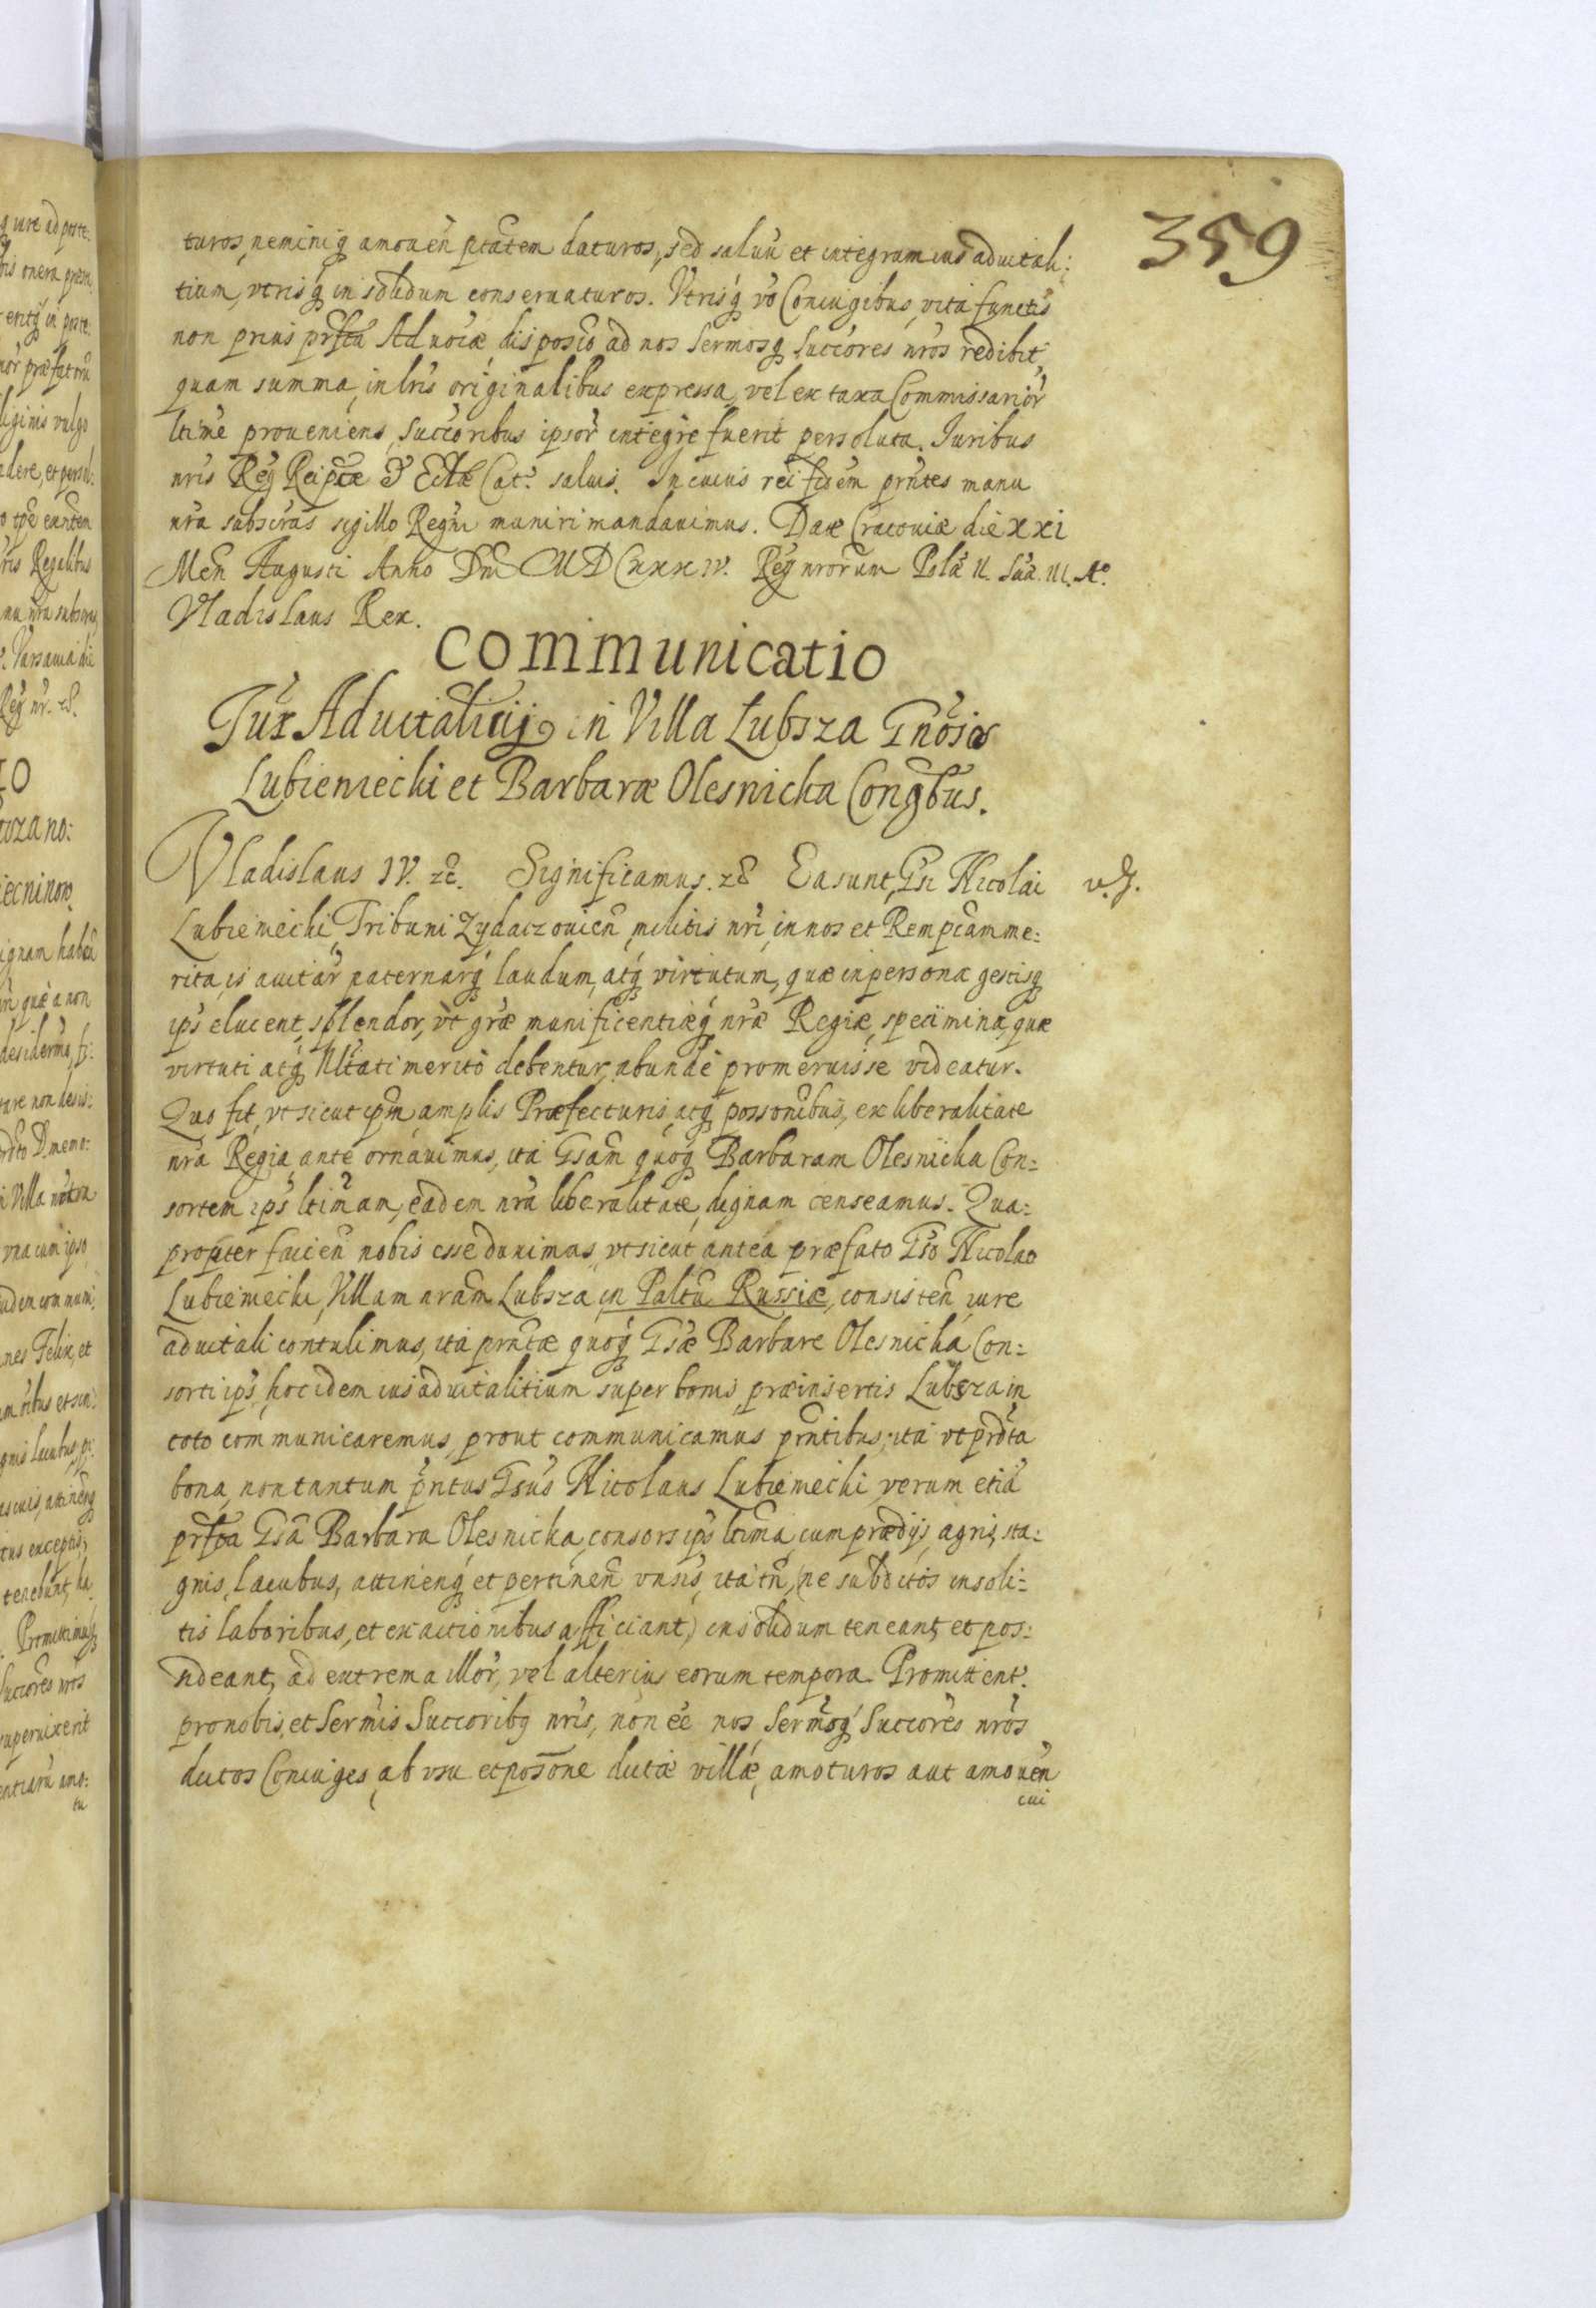 359
turos, neminiq amouen̄ ptātem daturos, sed saluū et integrum ius aduitali:
tium, vtrisq́ in solidum conseruaturos. Vtrisq́ vō Coniugibus, vita functis
non prius prfcta Aduōcae dispositō ad nos Sermosq́ Succōres nrōs redibit,
quam summa, in lrīs originalibus expressa, vel ex taxa Commissariōr
ltīme proueniens, Succōribus ipsōr integrè fuerit persoluta. Iuribus
nrīs Reg Reipcae & Eclae Cat. saluis. In cuius rei fidem prntes manu
nra subscras sigillo Regni muniri mandauimus. Datae Cracouiae die XXI
Men Augusti Anno Dni MDCxxxiv. Reg nrorum Polae II. Suae. III. Aō.
Vladislaus Rex.
Communicatio
Iur Aduitalitij in Villa Lubsza Gnosis
Lubieniecki et Barbarae Olesnicka Congbus.
Vladislaus IV. etc. Significamus. etc. Ea sunt, Gsi Nicolai
Lubieniecki, Tribuni Zydaczouien, militis nrī, in nos et Rempcam me:
rita, is auitar̄ paternarq́ laudum, atq́ virtutum, quae in persona gestisq́
ips elucent, splendor, vt grae munificentiaeq́ nrae Regiae, specimina, quae
virtuti atq́ Nltati meritò debentur, abundè promeruisse videatur.
Quo fit, vt sicut ipm, amplis Praefecturis, atq́ possonibus, ex liberalitate
nra Regia ante ornauimus, ita Gsam quoq́ Barbaram Olesnicka Con=
sortem ips ltimam, eadem nra liberalitate, dignam censeamus. Qua=
propter facien nobis esse duximus, vt sicut antea praefato Gso Nicolao
Lubieniecki, Villam nram Lubsza, in Paltu Russiae, consisten iure
aduitali contulimus, ita prntae quoq́ Gsae Barbare Olesnicka Con=
sorti ips, hoc idem ius aduitalitium super bonis, praeinsertis Lubsza in
toto communicaremus, prout communicamus prntibus; ita vt prdta
bona, non tantum prntus Gsus Nicolaus Lubieniecki, verum etiā
prfcta Gsa Barbara Olesnicka, consors ips ltima, cum praedijs, agris, sta=
gnis, lacubus, attinenq́ et pertinen vnsis, ita tn, (ne subditos insoli=
tis laboribus, et exactionibus afficiant,) in solidum teneant, et pos:
sideant, ad extrema illor, vel alterius eorum tempora. Promittent.
pro nobis, et Sermis Succoribq nris, non ēē nos, Sermosq́ Succores nros
dictos Coniuges, ab vsu et possone dictae villae, amoturos aut amouen
cui
v. g.